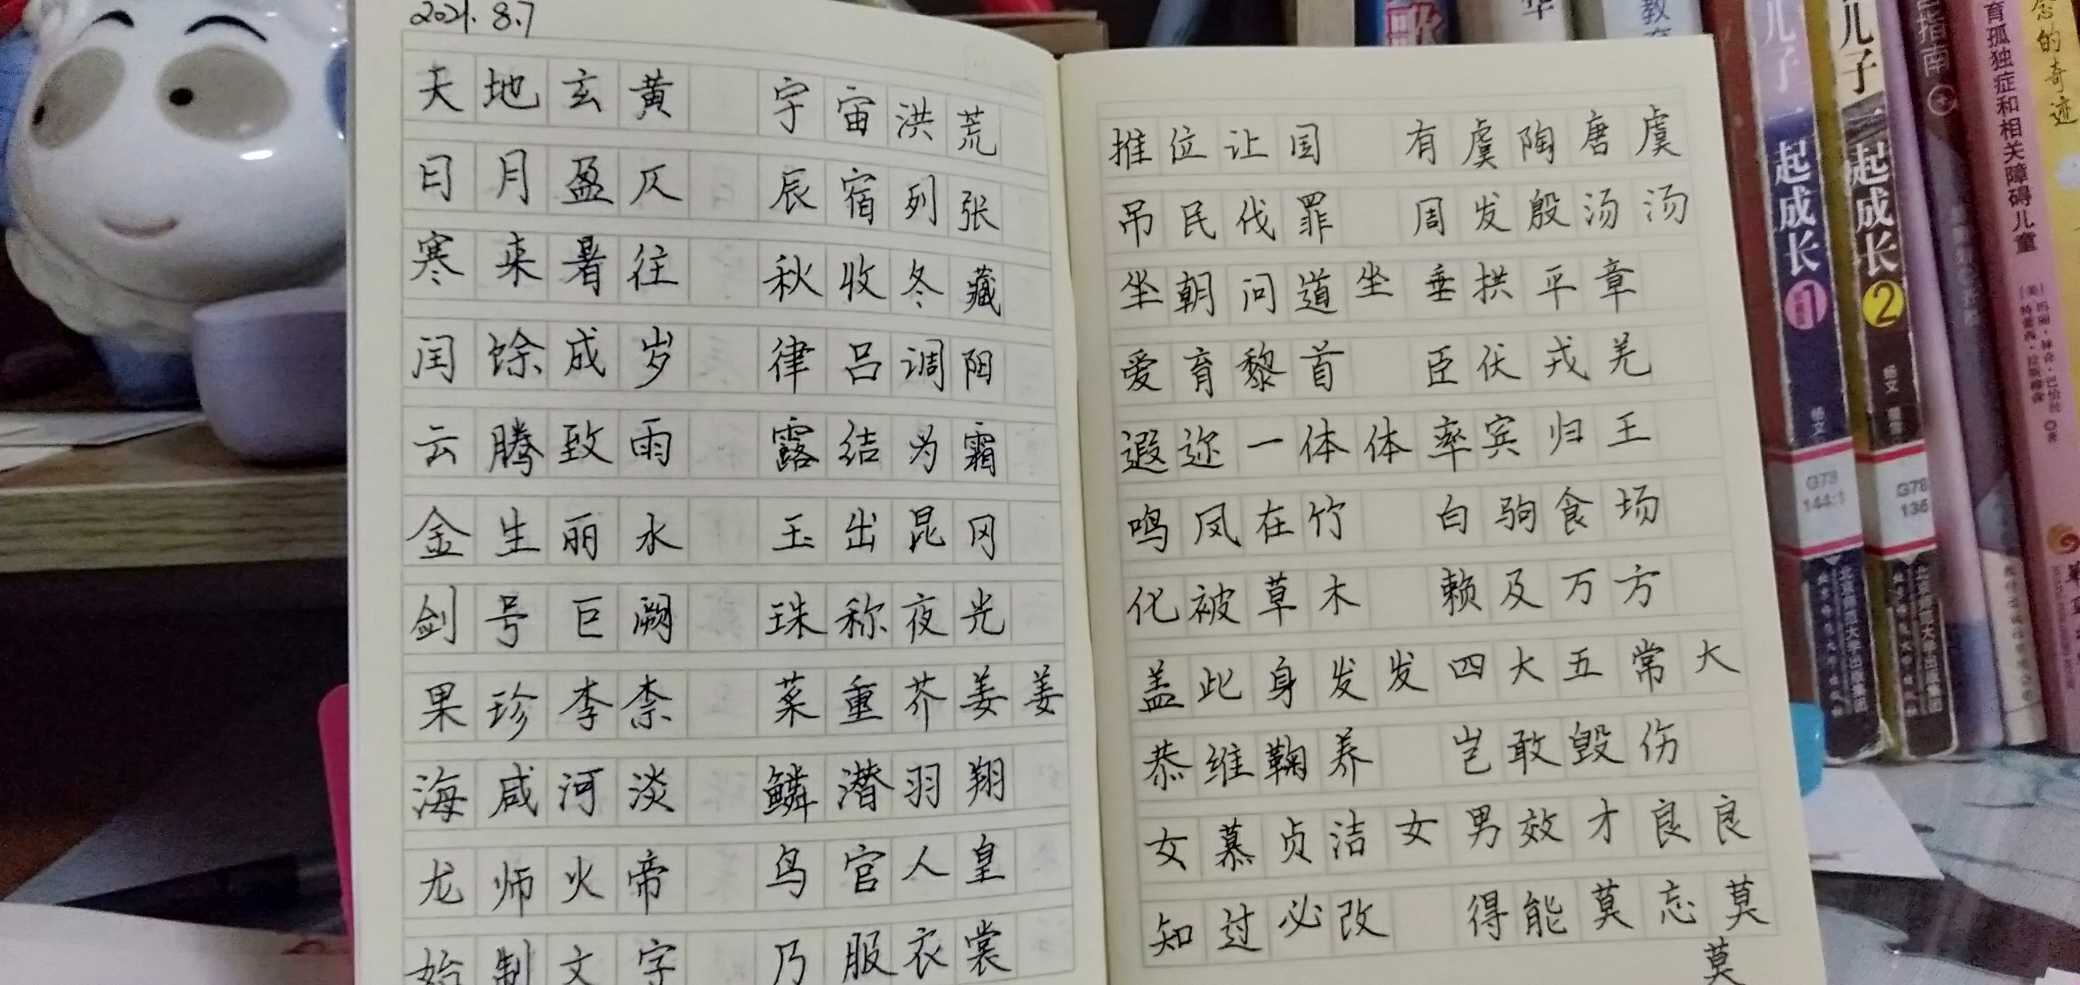 2021.8.7
天地玄黄 宇宙洪荒
日月盈仄 辰宿列张
寒来暑往 秋收冬藏
闰馀成岁 律吕调阳
云腾致雨 露结为霜
金生丽水 玉出昆冈
剑号巨阙 珠称夜光
果珍李柰 菜重芥姜姜
海咸河淡 鳞潜羽翔
龙师火帝 鸟官人皇
始制文字 乃服衣裳
推位让国 有虞陶唐虞
吊民伐罪 周发殷汤汤
坐朝问道坐垂拱平章
爱育黎首 臣伏戎羌
遐迩一体体率宾归王
鸣凤在竹 白驹食场
化被草木 赖及万方
盖此身发发四大五常大
恭维鞠养 岂敢毁伤
女慕贞洁女男效才良良
知过必改 得能莫忘莫
莫
儿子一起成长1
杨文
G78
144:1
儿子一起成长2
杨文
G78
136
指南
育孤独症和相关障碍儿童
念的奇迹
华
教
歌